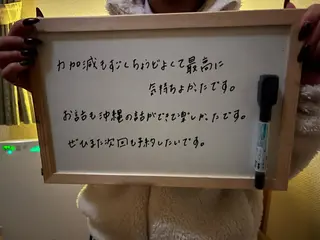 力加減もすごくちょうどよくて最高に
気持ちよかったです。
お話も沖縄の話ができて楽しかったです。
ぜひまた次回も予約したいです。